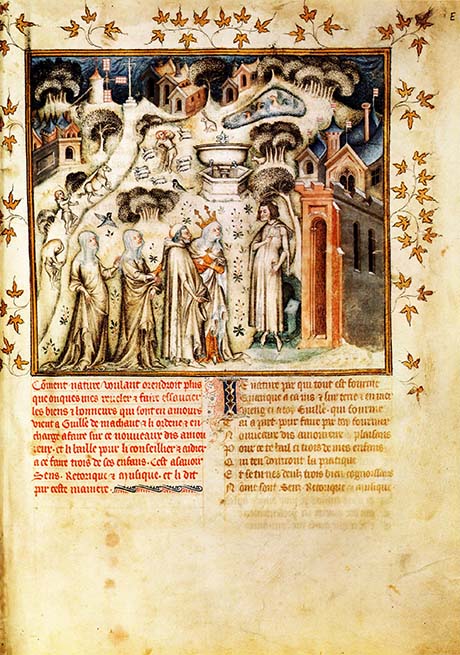 E
Coment nature voulant orendroit plus
que onques mes reveler & faire essaucier
les biens & honneurs qui sont en amours
vient a Guille de machaut & li ordene & en
charge a faire sur ce nouveaux dis amou
reux. et li baille pour li conseillier & aidier
a ce faire trois de ses enfans. Cest asavoir
Sens. Retorique & musique. et li dit
par ceste maniere.
Je nature par qui tout est fourme
Quanque a ca ius & sur terre & en mer
vieng ci a toy Guille. qui fourme
Tai a part pour faire par toy fourmer
Nouveaus dis amoureus & plaisans
Pour ce te bail ci trois de mes enfans
Qui ten donront la pratique
Et se tu nes deulz trois bien cognoissans
Nomé sont Sens Retorique & musique